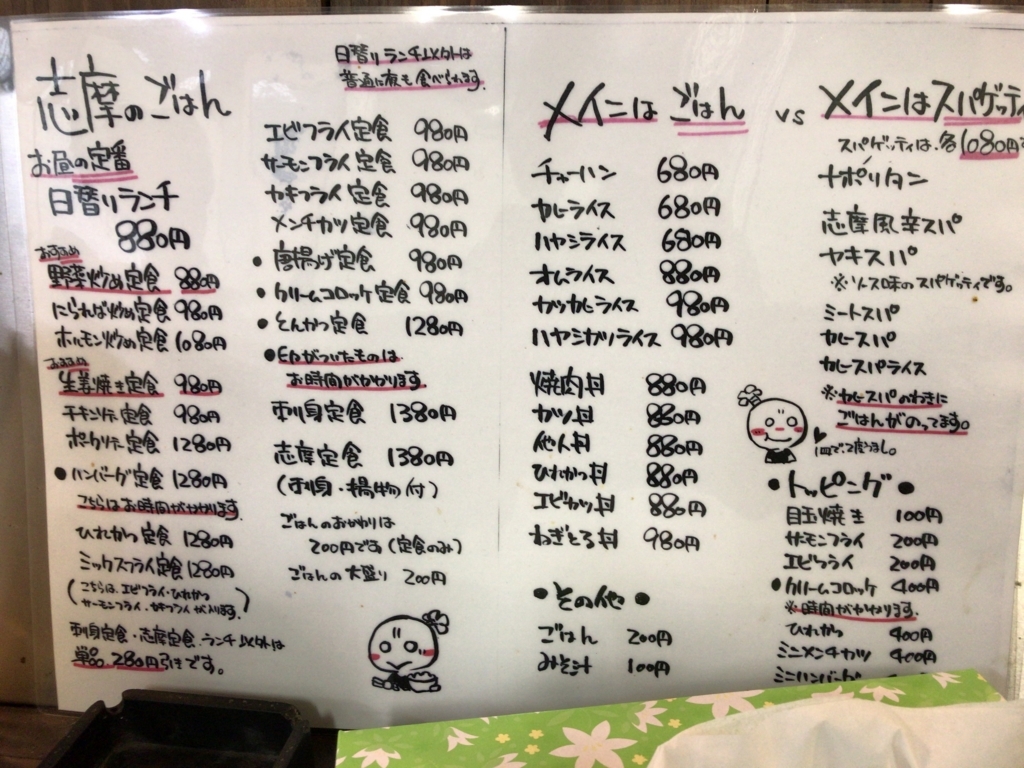 志摩のごはん
お昼の定番
日替りランチ
880円
おすすめ
野菜炒め定食 880円
にらればい炒め定食 980円
ホルモン炒め定食 1080円
おすすめ
生姜焼き定食 980円
チキンソテー定食 980円
ポークソテー定食 1280円
●ハンバーグ定食 1280円
こちらはお時間がかかります。
ひれかつ定食 1280円
ミックスフライ定食 1280円
(こちらは、エビフライ・ひれかつ
サーモンフライ・カキフライが入ります。)
刺身定食・志摩定食・ランチ以外は
単品、280円引きです。
日替りランチ以外は
普通に夜も食べられます。
エビフライ定食 980円
サーモンフライ定食 980円
カキフライ定食 980円
メンチカツ定食 980円
●唐揚げ定食 980円
●クリームコロッケ定食 980円
●とんかつ定食 1280円
●印がついたものは
お時間がかかります
刺身定食 1380円
志摩定食 1380円
(刺身・揚物付)
ごはんのおかわりは
200円です(定食のみ)
ごはんの大盛り 200円
メインはごはん
チャーハン 680円
カレーライス 680円
ハヤシライス 680円
オムライス 880円
カツカレーライス 980円
ハヤシカツライス 980円
焼肉丼 880円
カツ丼 880円
他人丼 880円
ひれかつ丼 880円
エビカツ丼 880円
ねぎとろ丼 980円
●その他●
ごはん 200円
みそ汁 100円
vs
メインはスパゲッティ
スパゲッティは、各1080円
ナポリタン
志摩風辛スパ
ヤキスパ
※ソース味のスパゲッティです。
ミートスパ
カレースパ
カレースパライス
※カレースパのわきに
ごはんがのってます。
1皿で、2度うまし。
●トッピング●
目玉焼き 100円
サーモンフライ 200円
エビフライ 200円
●クリームコロッケ 400円
※時間がかかります。
ひれかつ 400円
ミニメンチカツ 400円
ミニハンバーグ